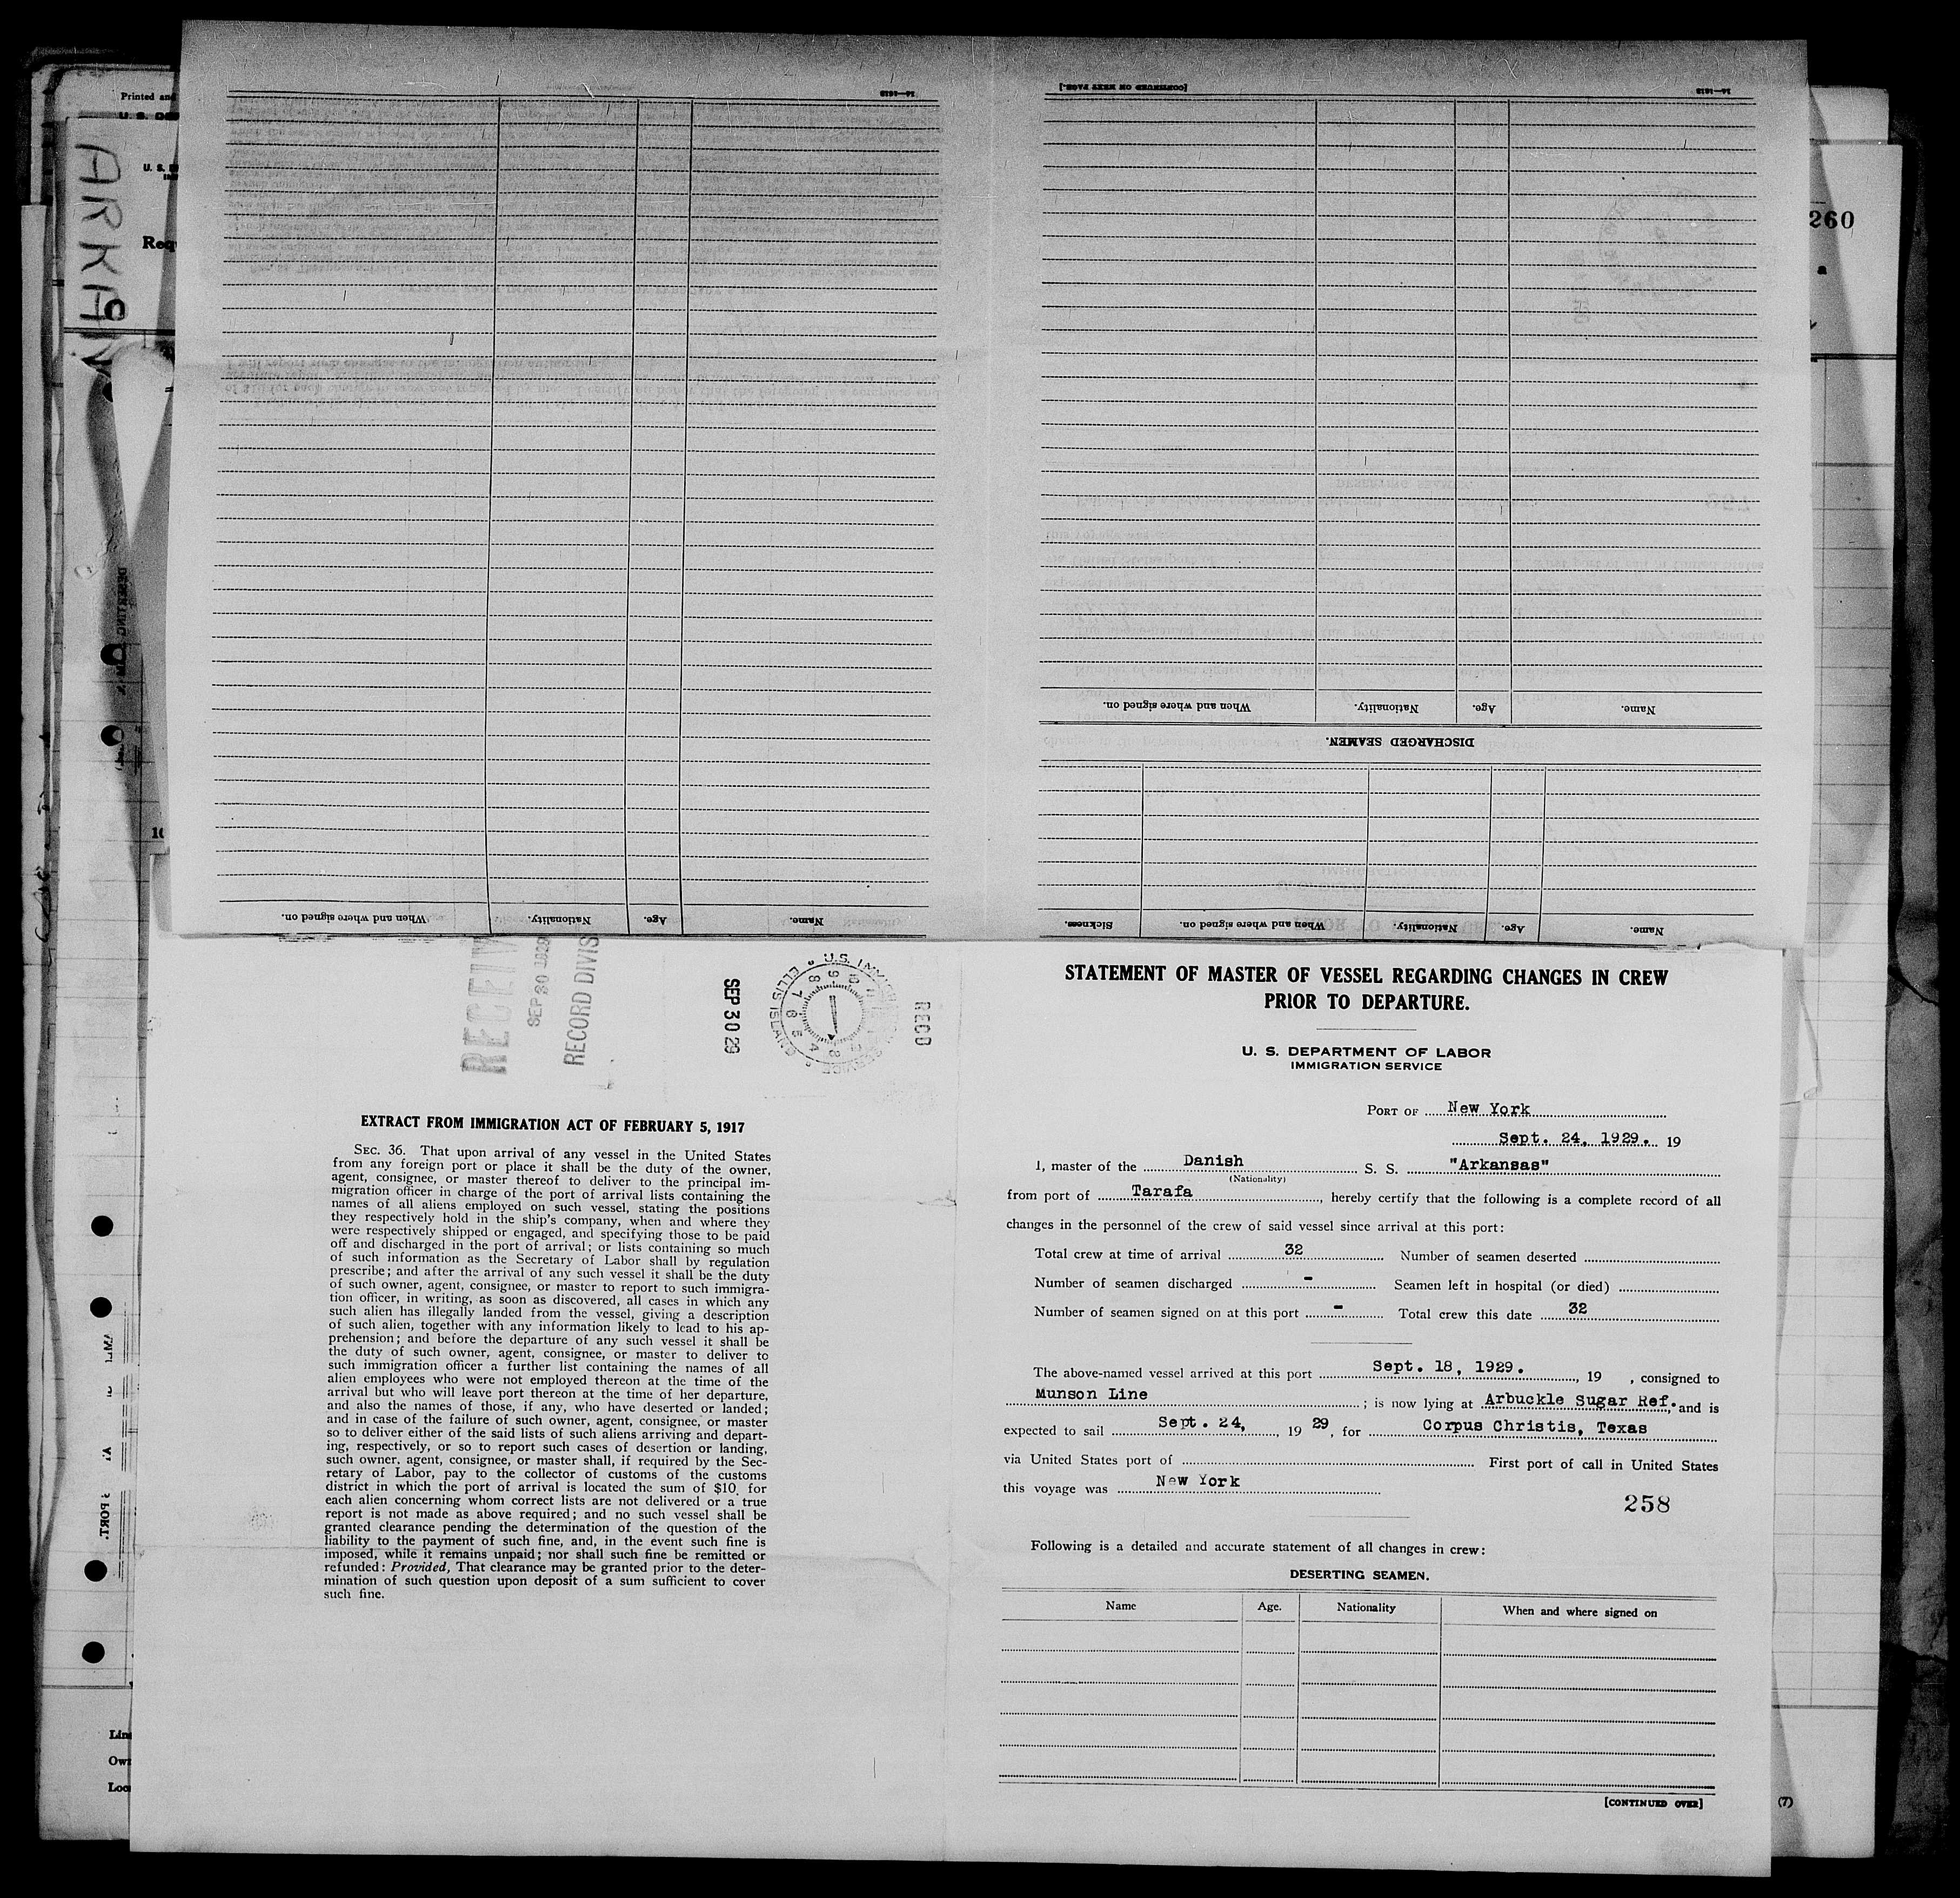 Printed and
ARKAN
Req
260
14—1618
[CONTINUED ON NEXT PAGE.]
14—1618
When and where signed on.
Nationality.
Age.
Name.
DISCHARGED SEAMEN.
When and where signed on.
Nationality.
Age.
Name.
Sickness.
When and where signed on.
Nationality.
Age.
Name.
SEP 30 1929
RECORD DIVIS
SEP 30 29
U.S. IMMIGRATION SERVICE ELLIS ISLAND
RECD
EXTRACT FROM IMMIGRATION ACT OF FEBRUARY 5, 1917
SEC. 36. That upon arrival of any vessel in the United States
from any foreign port or place it shall be the duty of the owner,
agent, consignee, or master thereof to deliver to the principal im-
migration officer in charge of the port of arrival lists containing the
names of all aliens employed on such vessel, stating the positions
they respectively hold in the ship's company, when and where they
were respectively shipped or engaged, and specifying those to be paid
off and discharged in the port of arrival; or lists containing so much
of such information as the Secretary of Labor shall by regulation
prescribe; and after the arrival of any such vessel it shall be the duty
of such owner, agent, consignee, or master to report to such immigra-
tion officer, in writing, as soon as discovered, all cases in which any
such alien has illegally landed from the vessel, giving a description
of such alien, together with any information likely to lead to his ap-
prehension; and before the departure of any such vessel it shall be
the duty of such owner, agent, consignee, or master to deliver to
such immigration officer a further list containing the names of all
alien employees who were not employed thereon at the time of the
arrival but who will leave port thereon at the time of her departure,
and also the names of those, if any, who have deserted or landed;
and in case of the failure of such owner, agent, consignee, or master
so to deliver either of the said lists of such aliens arriving and depart-
ing, respectively, or so to report such cases of desertion or landing,
such owner, agent, consignee, or master shall, if required by the Sec-
retary of Labor, pay to the collector of customs of the customs
district in which the port of arrival is located the sum of $10 for
each alien concerning whom correct lists are not delivered or a true
report is not made as above required; and no such vessel shall be
granted clearance pending the determination of the question of the
liability to the payment of such fine, and, in the event such fine is
imposed, while it remains unpaid; nor shall such fine be remitted or
refunded: Provided, That clearance may be granted prior to the deter-
mination of such question upon deposit of a sum sufficient to cover
such fine.
STATEMENT OF MASTER OF VESSEL REGARDING CHANGES IN CREW
PRIOR TO DEPARTURE.
U. S. DEPARTMENT OF LABOR
IMMIGRATION SERVICE
PORT OF New York
Sept. 24, 1929. 19
I, master of the Danish S. S. "Arkansas"
(Nationality)
from port of Tarafa, hereby certify that the following is a complete record of all
changes in the personnel of the crew of said vessel since arrival at this port:
Total crew at time of arrival 32 Number of seamen deserted
Number of seamen discharged - Seamen left in hospital (or died)
Number of seamen signed on at this port - Total crew this date 32
The above-named vessel arrived at this port Sept. 18, 1929., 19 , consigned to
Munson Line; is now lying at Arbuckle Sugar Ref. and is
expected to sail Sept. 24, , 19 29, for Corpus Christis, Texas
via United States port of First port of call in United States
this voyage was New York
258
Following is a detailed and accurate statement of all changes in crew:
DESERTING SEAMEN.
Name Age. Nationality When and where signed on
[CONTINUED OVER]
(7)